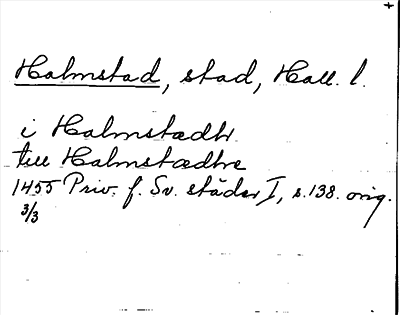 Halmstad, stad, Hall. l.
i Halmstædh
till Halmstædhe
1455 Priv. f. Sv. städer I, s. 138. orig.
3/3